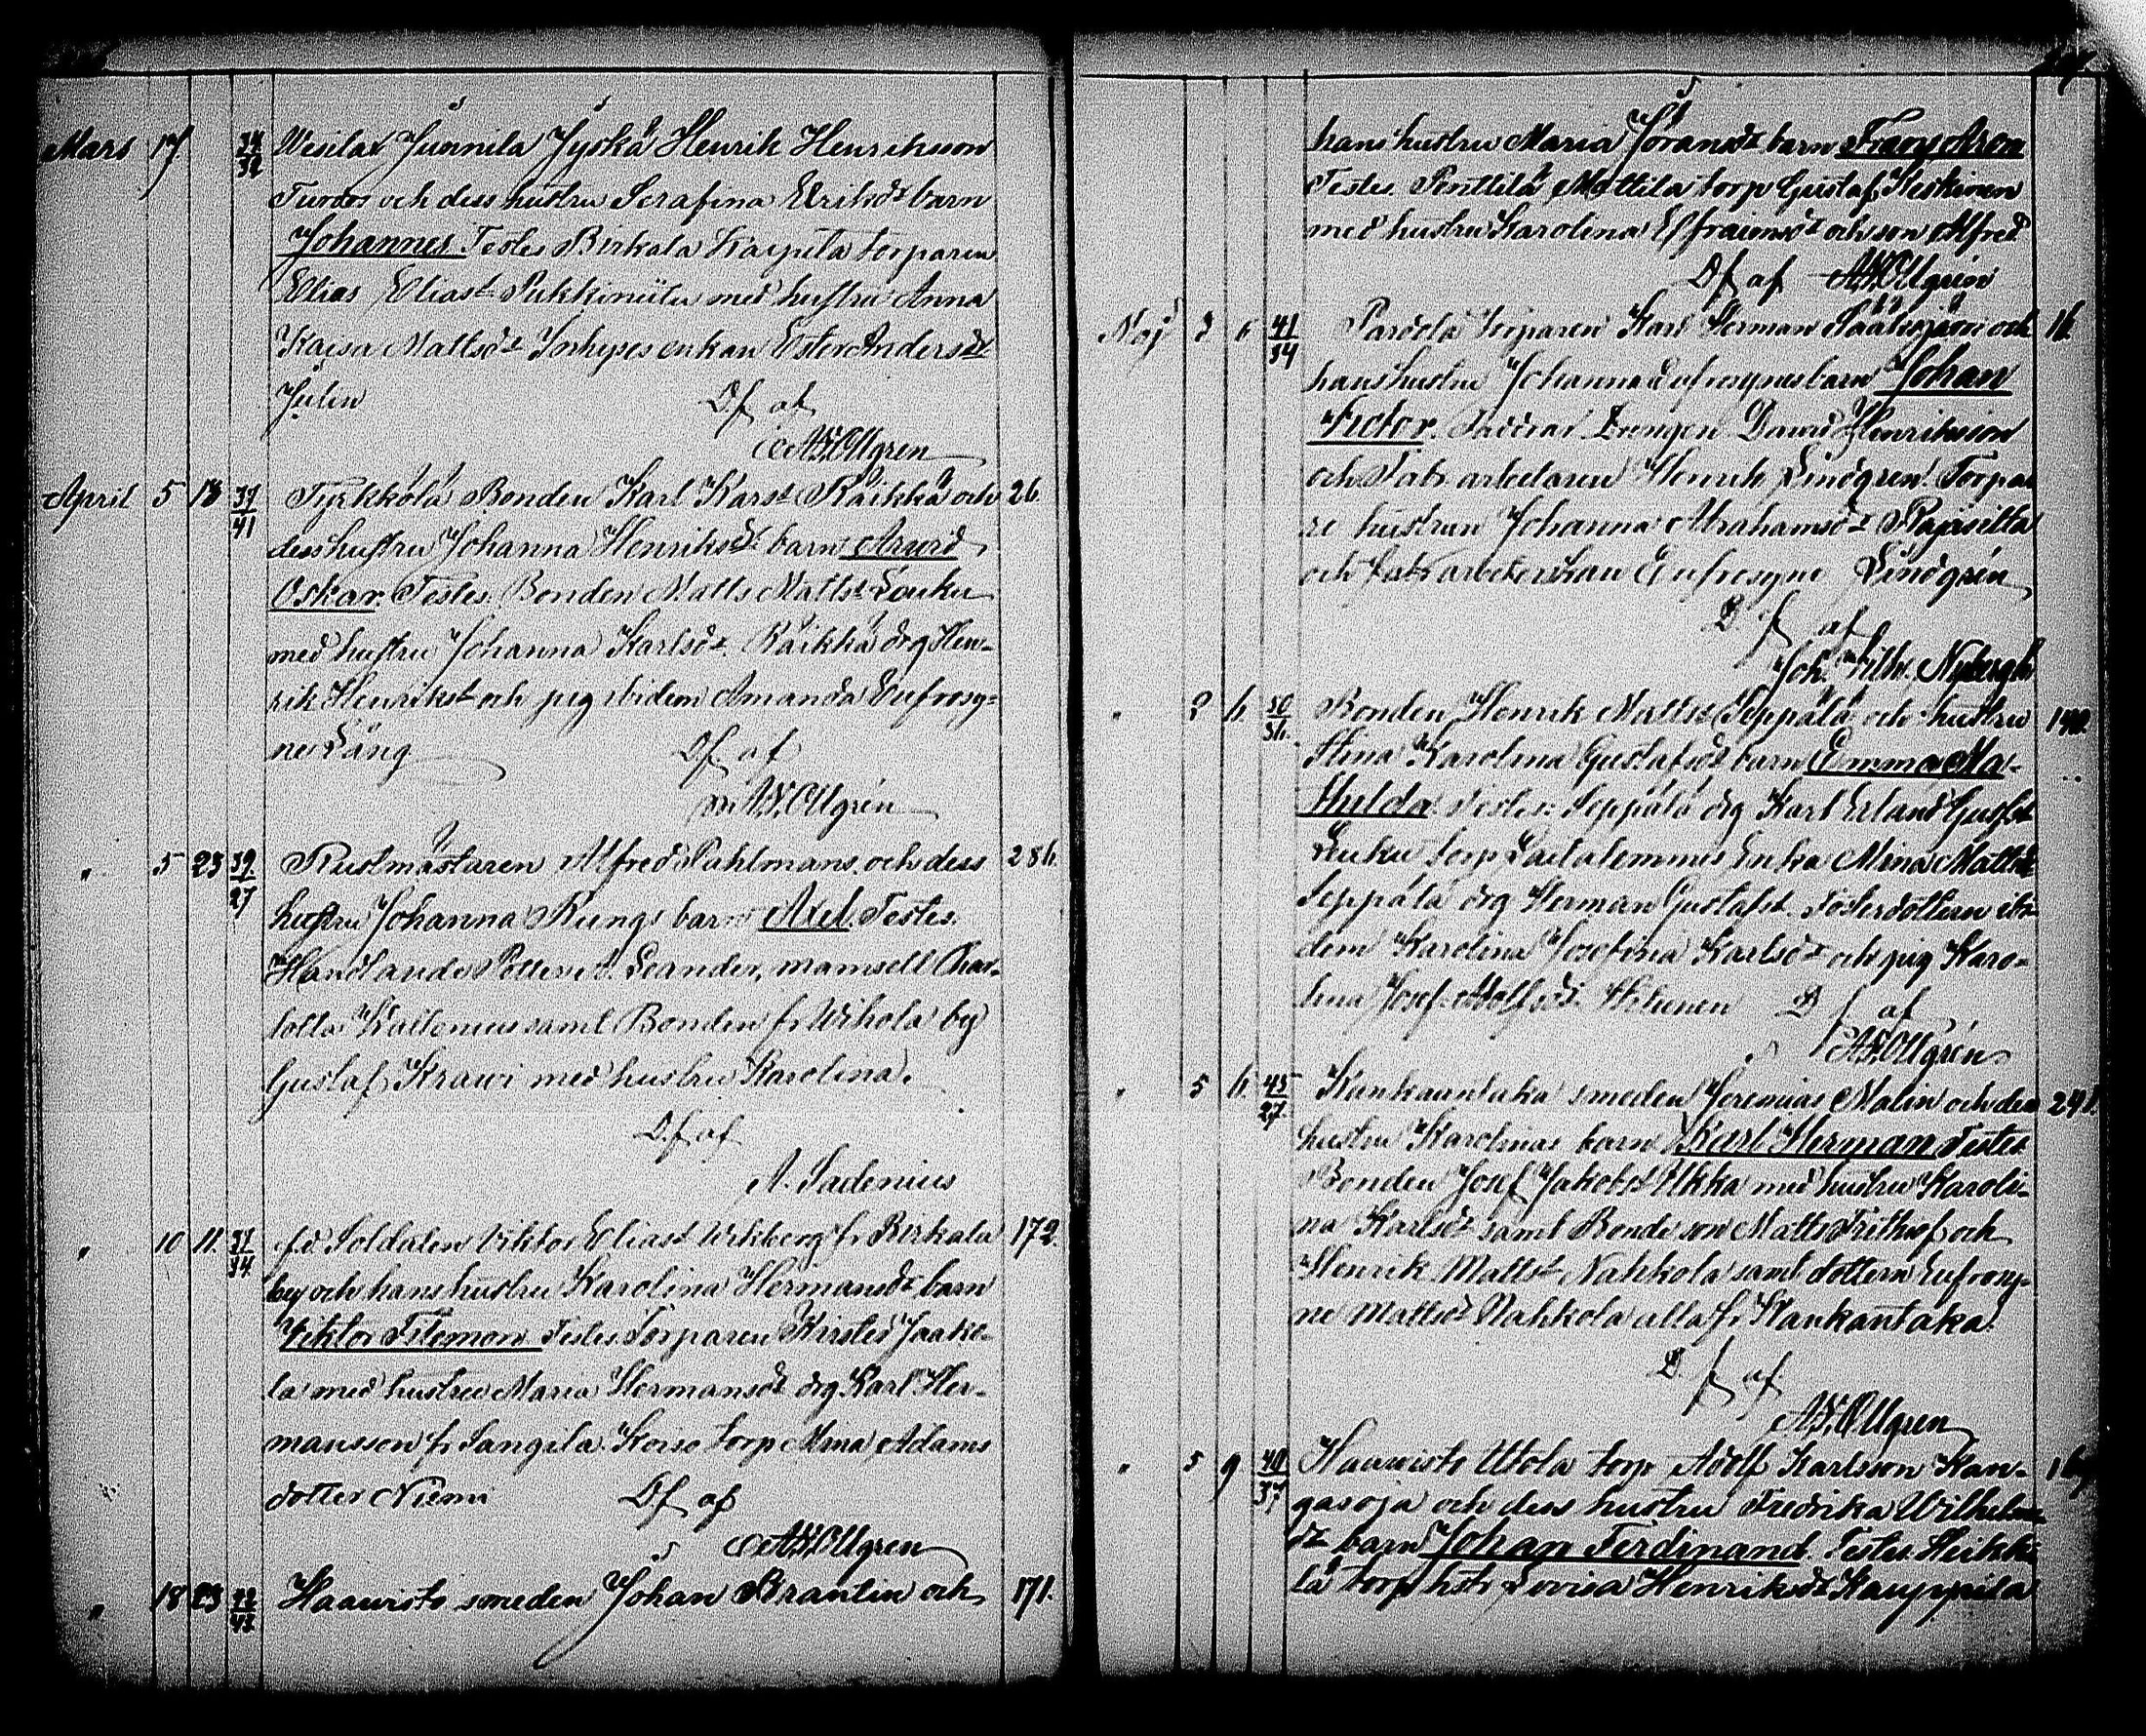 Mars 17 34/32 Wesilax Junnila Jyskä Henrik Henriksson
Turdos och dess hustru Serafina Eriksdr barn
Johannes. Testes Birkala torparen
Elias Eliasst med hustru Anna
Kajsa Mattsdr enkan Ester Andersdr
Julin D.f. af
A.F. Ollgren
April 5 13 37/41 Tyrkkölä Bonden Karl Karst Räikkä och 26.
dess hustru Johanna Henriksdr barn Arvid
Oskar. Testes: Bonden Matts Mattsst Louku
med hustru Johanna Karlsdr. Räikkä drg Hen-
rik Henrikst och pig ibidem Amanda Eufrosy-
ne Lång D.f. af
A.F. Ollgren
" 5 23 39/27 Rustmästaren Alfred Pahlmans och dess 286.
hustru Johanna Rungs barn Axel. Testes.
Handlande Leander, mamsell Char-
lotta Kallenius samt Bonden fr Wihola by
Gustaf Krawi med hustru Karolina.
D.f. af
A. Sadenius
" 10 11. 37/34 f.d. Soldaten Viktor Eliast Wikberg fr Birkala 172.
by och hans hustru Karolina Hermansdr barn
Viktor Filemon Testes Torparen Kristed Jaako-
la med hustru Maria Hermansdr drg Karl Her-
mansson fr Sangila Korso torp Mina Adams
dotter Niemi D.f. af
A.F. Ollgren
" 18 23 Haavisto smeden Johan Brantin och 171.
hans hustru Maria Göransdr barn Frans Aron
Testes Penttilä Mattila torp Gustaf Heskinen
med hustru Karolina Effraimsdr och son Alfred
D.f. af A.F. Ollgren
Maj 2 6 41/34 Pardela torparen Karl Herman Sääksjärvi och 16.
hans hustru Johanna Eufrosynes barn Johan
Victor. Faddrar: Drengen David Henriksson
och Fabr. arbetaren Henrik Lindgren. Torpa-
re hustrun Johanna Abrahamsdr Rajasilta
och Fabr arbeterskan Eufrosyne Lindgrén
D. f. af
Joh. Wilh. Nybergh
" 2 6. 50/36. Bonden Henrik Mattss Seppälä och hustru 140.
Stina Karolina Gustafsdr barn Emma Ma-
thilda. Testes: Seppälä drg Karl Erland Gustfst
Louku torp enka Mina Mattsdr
Seppälä drg Herman Gustafst. fosterdottern ibi-
dem Karolina Josefina Karlsdr och pig Karo-
lina Josef. Adolfsdr Hilunen D f af
A.F. Ollgrén
" 5 6. 45/27. Kankaantaka smeden Jeremias Malin och dess 241.
hustru Karolinas barn Karl Herman Testes
Bonden Josef Jakobst Ukka med hustru Karoli-
na Karlsdr samt Bonde son Matts Frithiof och
Henrik Mattst Nahkola samt dottern Eufrosy-
ne Mattsdr Nahkola alla fr Kankantaka.
D. f. af
A.F. Ollgren
" 5 9 40/37 Haavisto Utola torp Adolf Karlsson Kan-
gasoja och dess hustru Fredrika Wilhelms-
dr barn Johan Ferdinand. Testes Heikki-
lä torp hstr Lovisa Henriksdr Kauppila